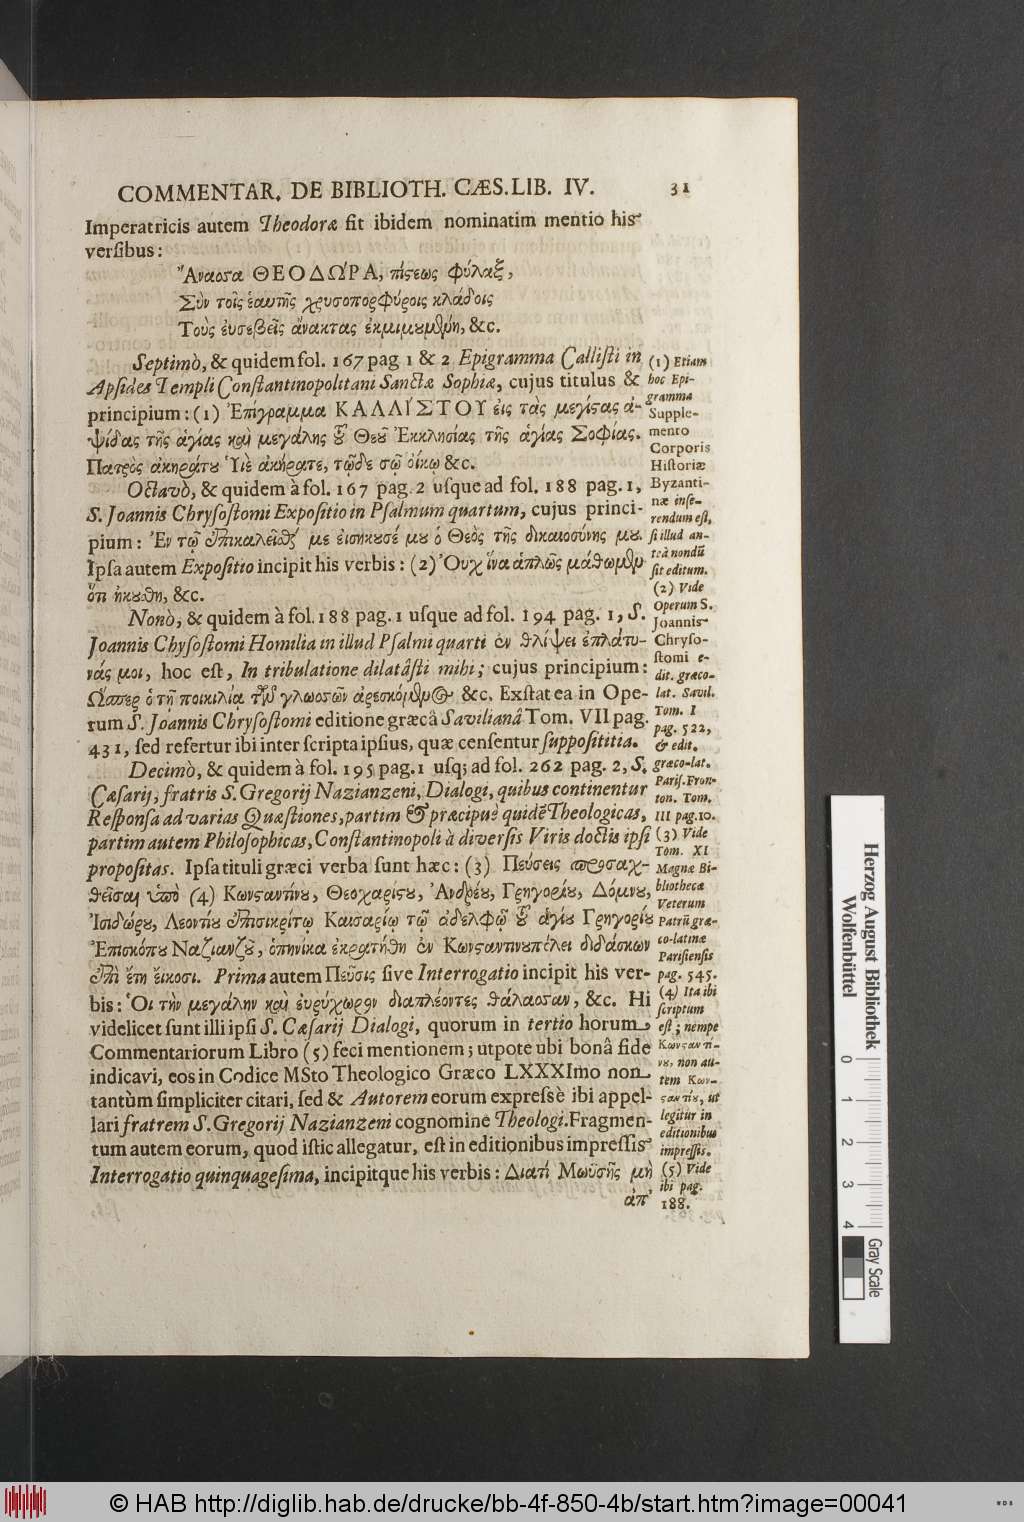 COMMENTAR. DE BIBLIOTH. CÆS. LIB. IV. 31
Imperatricis autem Theodoræ fit ibidem nominatim mentio his
verſibus:
Ἄναοσα ΘΕΟΔΩΡΑ, πίςεως φύλαξ,
Σὺν τοῖς ἑαυτῆς χρυσοπορφύροις κλάδοις
Τοὺς ἐυσεβεῖς ἄνακτας ἐκμιμουμένη, &c.
Septimò, & quidem fol. 167 pag 1 & 2 Epigramma Calliſti in
Apſides Templi Conſtantinopolitani Sanctæ Sophiæ, cujus titulus &
principium: (1) Ἐπίγραμμα ΚΑΛΛΙΣΤΟΥ ἐις τὰς μεγίςας ἀ-
ψίδας τῆς ἁγίας καὶ μεγάλης τοῦ Θεοῦ Ἐκκλησίας τῆς ἁγίας Σοφίας.
Πατρὸς ἀκηράτου Ὑιὲ ἀκήρατε, τῷδε σῷ οἴκῳ &c.
Octavò, & quidem à fol. 167 pag. 2 uſque ad fol. 188 pag. 1,
S. Joannis Chryſoſtomi Expoſitio in Pſalmum quartum, cujus princi-
pium: Ἐν τῷ ἐπικαλεῖσθαί με εἰσήκουσέ μου ὁ Θεὸς τῆς δικαιοσύνης μου.
Ipſa autem Expoſitio incipit his verbis: (2) Οὐχ ἵνα ἁπλῶς μάθωμεν
ὅτι ἠκούθη, &c.
Nonò, & quidem à fol. 188 pag. 1 uſque ad fol. 194 pag. 1, S.
Joannis Chyſoſtomi Homilia in illud Pſalmi quarti ἐν θλίψει ἐπλάτυ-
νάς μοι, hoc eſt, In tribulatione dilatâſti mihi; cujus principium:
Ὥσπερ ὁ τῇ ποικιλίᾳ τῶν γλωοσῶν ἀρεσκόμενος &c. Exſtat ea in Ope-
rum S. Joannis Chryſoſtomi editione græcâ Savilianâ Tom. VII pag.
431, ſed refertur ibi inter ſcripta ipſius, quæ cenſentur ſuppoſititia.
Decimò, & quidem à fol. 195 pag. 1 uſq; ad fol. 262 pag. 2, S.
Cæſarij, fratris S. Gregorij Nazianzeni, Dialogi, quibus continentur
Reſponſa ad varias Quæſtiones, partim & præcipuè quidē Theologicas,
partim autem Philoſophicas, Conſtantinopoli à diverſis Viris doctis ipſi
propoſitas. Ipſa tituli græci verba ſunt hæc: (3) Πεύσεις προσαχ-
θεῖσαι ὑπὸ (4) Κωνςαντίνου, Θεοχαρίςου, Ἀνδρέου, Γρηγορίου, Δόμνου,
Ἰσιδώρου, Λεοντίου ἐπισικρίτῳ Καισαρίῳ τῷ ἀδελφῷ τοῦ ἁγίου Γρηγορίου
Ἐπισκόπου Ναζιανζοῦ, ὁπηνίκα ἐκρατήθη ἐν Κωνςαντινουπόλει διδάσκων
ἐπὶ ἔτη ἔικοσι. Prima autem Πεῦσις ſive Interrogatio incipit his ver-
bis: Ὁι τὴν μεγάλην καὶ ἐυρύχωρον διαπλέοντες θάλαοσαν, &c. Hi
videlicet ſunt illi ipſi S. Cæſarij Dialogi, quorum in tertio horum
Commentariorum Libro (5) feci mentionem; utpote ubi bonâ fide
indicavi, eos in Codice MSto Theologico Græco LXXXImo non
tantùm ſimpliciter citari, ſed & Autorem eorum expreſsè ibi appel-
lari fratrem S. Gregorij Nazianzeni cognomine Theologi. Fragmen-
tum autem eorum, quod iſtic allegatur, eſt in editionibus impreſſis
Interrogatio quinquageſima, incipitque his verbis: Διατί Μωϋσῆς μὴ
ἀπ
(1) Etiam
hoc Epi-
gramma
Supple-
mento
Corporis
Hiſtoriæ
Byzanti-
næ inſe-
rendum eſt,
ſi illud an-
teà nondū
ſit editum.
(2) Vide
Operum S.
Joannis
Chryſo-
ſtomi e-
dit. græco-
lat. Savil.
Tom. I
pag. 522,
& edit.
græco-lat.
Pariſ. Fron-
ton. Tom.
III pag. 10.
(3) Vide
Tom. XI
Magnæ Bi-
bliothecæ
Veterum
Patrū græ-
co-latinæ
Pariſienſis
pag. 545.
(4) Ita ibi
ſcriptum
eſt; nempe
Κωνςαντί-
νου, non au-
tem Κων-
ςαντίου, ut
legitur in
editionibus
impreſſis.
(5) Vide
ibi pag.
188.
Herzog August Bibliothek
Wolfenbüttel
0 1 2 3 4
Gray Scale
© HAB http://diglib.hab.de/drucke/bb-4f-850-4b/start.htm?image=00041